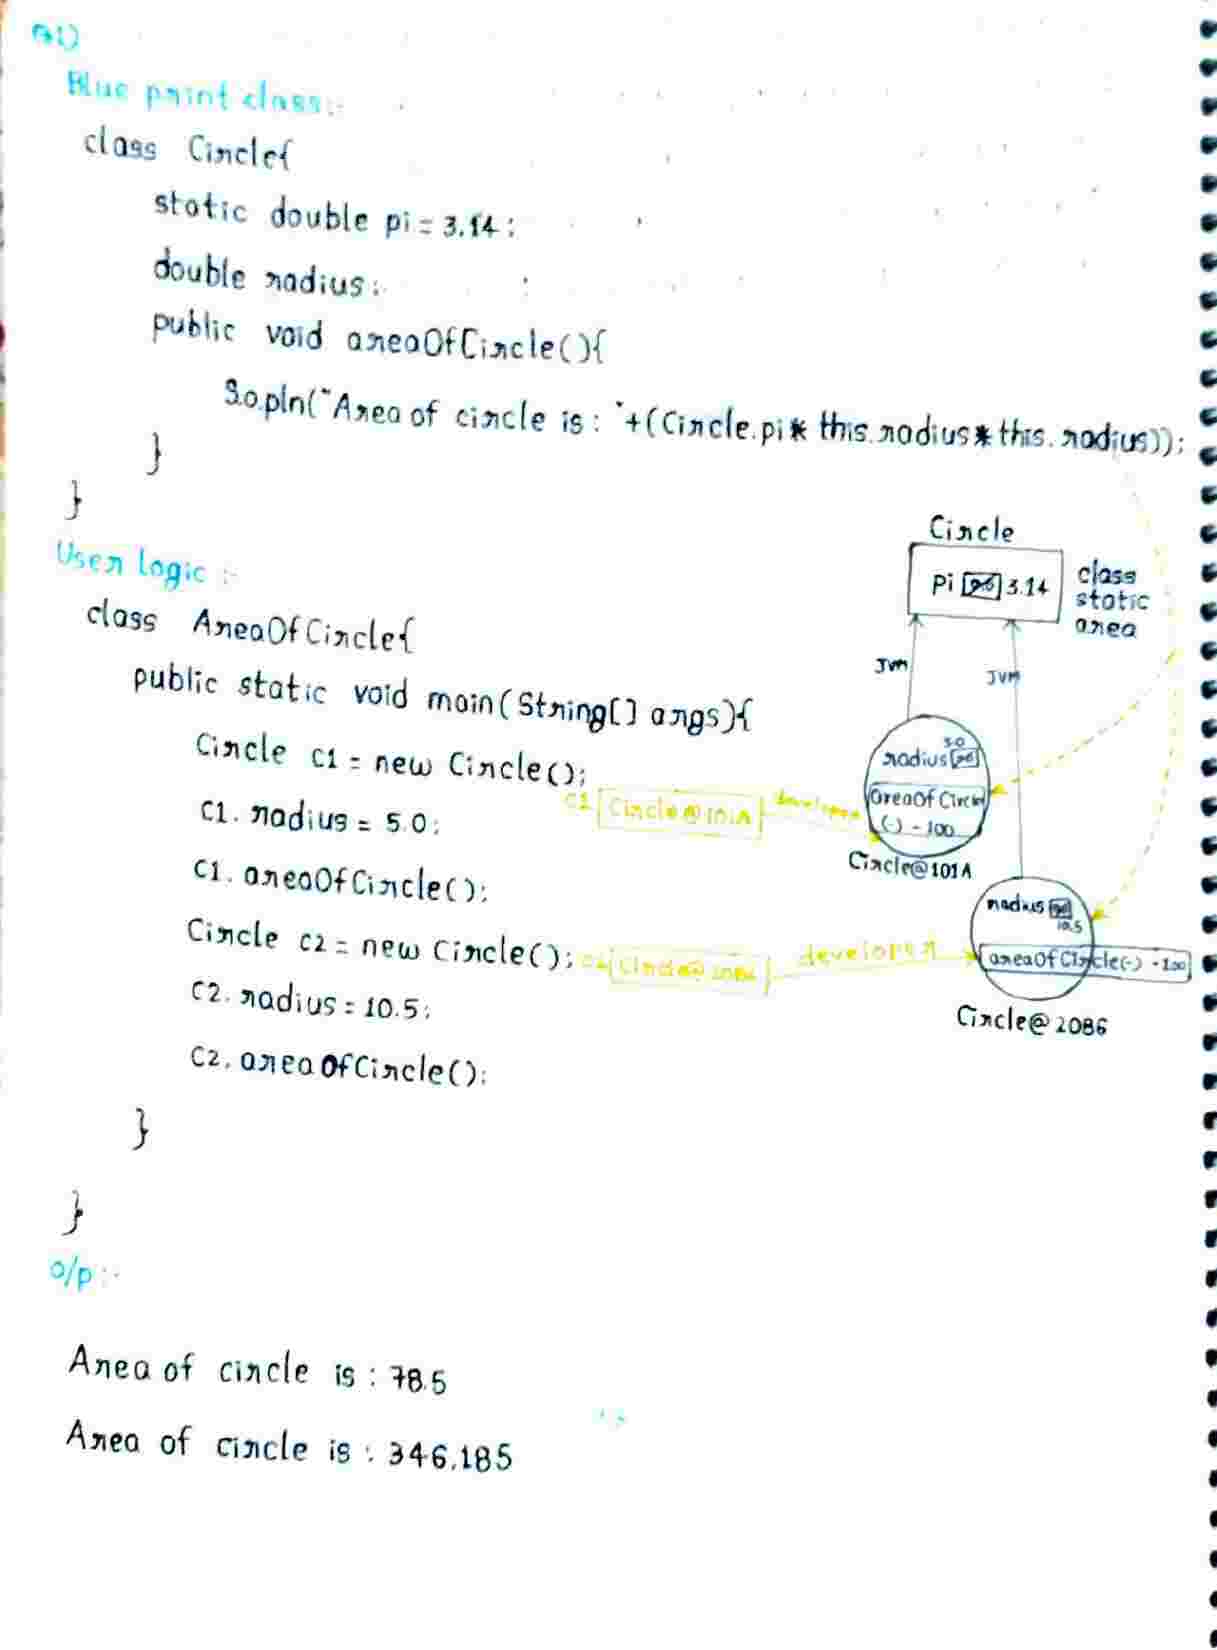 Q1)
Blue print class:-
class Circle{
static double pi = 3.14;
double radius;
public void areaOfCircle(){
S.o.pln("Area of circle is: "+(Circle.pi* this.radius*this.radius));
}
}
User logic :-
class AreaOfCircle{
public static void main(String[] args){
Circle c1 = new Circle();
C1. radius = 5.0;
C1. areaOfCircle();
Circle c2 = new Circle();
C2. radius = 10.5;
C2. areaOfCircle();
}
}
Circle
Pi 0.0 3.14
class
static
area
JVM
JVM
5.0
radius
areaOf Circle
(-) - 100
Circle@101A
C1 Circle@101A developer
radius
10.5
areaOfCircle(-) - 100
Circle@2086
developer
o/p :-
Area of circle is : 78.5
Area of circle is : 346.185